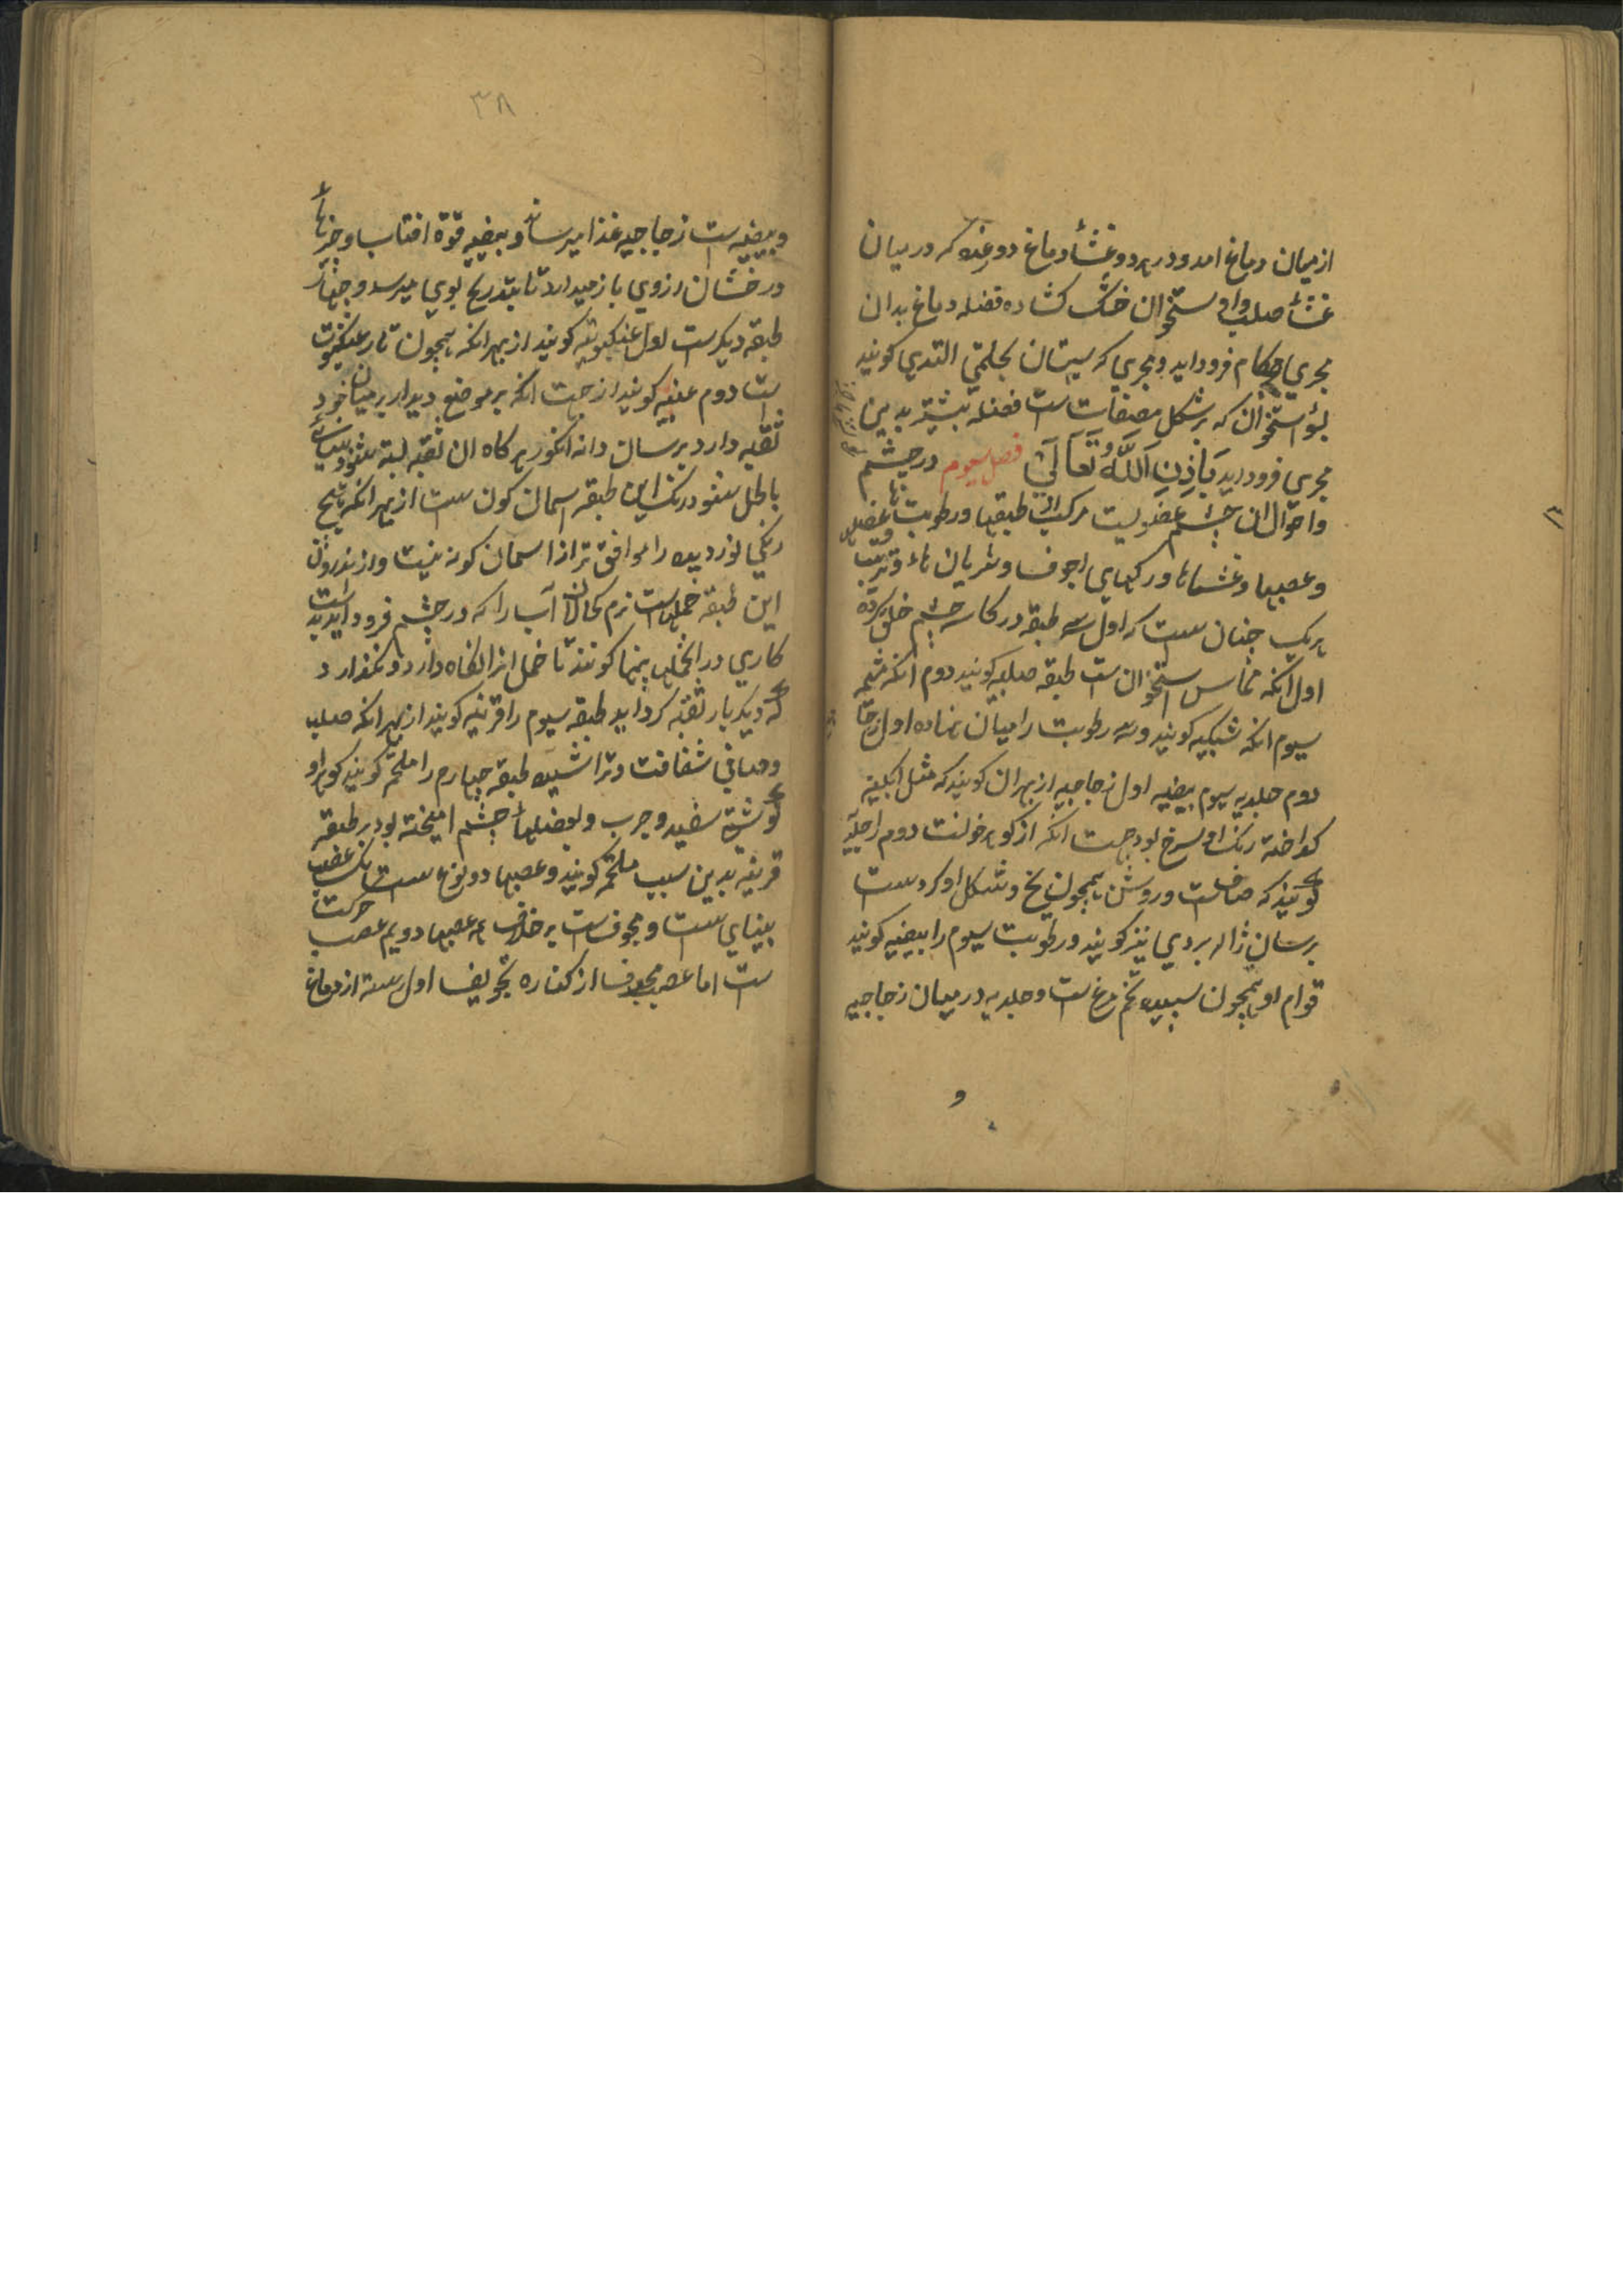 از میان دماغ امد و در هر دو غشأ دماغ دو غده که در میان
غشأ صلب و استخوان خشک کشاده فضله دماغ بدان
مجری بکام فرود اید و مجری که بستان بحلمتی الثدی کویند
استخوان که بر شکل مصفات ست فضله بیشتر بدین
مجری فرود اید بَاِذنِ اَللّٰهُ تَعَالَیٰ فصل سیوم در چشم
و احوال ان چشم عضویست مرکب از طبقها و رطوبت ها و عضلها
و عصبها و غشاها و رکهای اجوف و شریان هاء و ترتیب
هریک چنان ست که اول سه طبقه در کاسه چشم خلق کرده
اول انکه مماس استخوان ست طبقه صلبیه کویند دوم انکه مشیمه
سیوم انکه شبکیه کویند و سه رطوبت را میان نهاده اول زجا
دوم جلدیه سیوم بیضیه اول زجاجیه از بهر ان کویند که مثل ابکینه
کداخته رنک او سرخ بود جهت انکه از کوهر خونست دوم را جلیدیه
کویند که صاف ست و روشن همچون یخ و شکل او کردست
برسان ژاله بردی نیز کویند و رطوبت سیوم را بیضیه کویند
قوام او همچون سبیده تخم مرغ ست و جلدیه در میان زجاجیه
و
۳۸
و بیضیه ست زجاجیه غذا میرساند و بیضیه قوة افتاب و چیزها
درخشان از وی باز میدارد تا بتدریج بوی میرسد و چهار
طبقه دیکرست اول عنکبوتیه کویند از بهر انکه همچون تار عنکبوت
ست دوم عنبیه کویند از جهت انکه بر موضع دیدار بر میان خود
ثقبه دارد برسان دانه انکور هرکاه ان ثقبه بسته شود بینائی
باطل شود رنک این طبقه اسمان کون ست از بهر انکه هیچ
رنکی نور دیده را موافق تر از اسمان کون نیست و از اندرون
این طبقه خملهاست نرم کحالان آب را که در چشم فرود اید بدست
کاری در انخملها پنها کونند تا خمل انرا نکاه دارد و نکذارد
که دیکر بار ثقبه کرد اید طبقه سیوم را قرنیه کویند از بهر انکه صلب
و صافی شفافت و تراشیده طبقه چهارم را ملتحم کویند کوهر او
کوشتی سفید و چرب و بعضلهأ چشم امیخته بود بر طبقه
قرنیه بدین سبب ملتحمه کویند و عصبها دو نوع ست یک عصب
بینایی ست و مجوف ست به خلاف همه عصبها دویم عصب حرکت
ست اما عصب مجوف از کناره تجویف اول رسته از دماغ